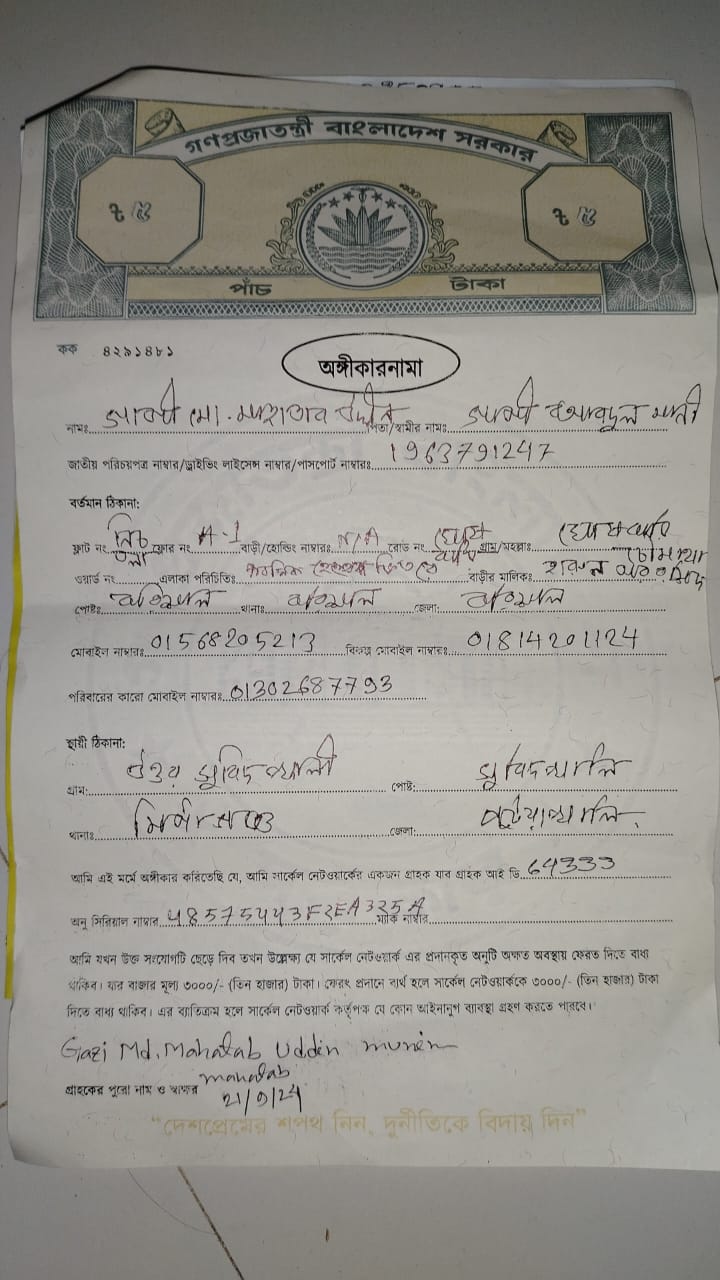 গণপ্রজাতন্ত্রী বাংলাদেশ সরকার
৳ ৫ ৳ ৫
পাঁচ টাকা
কক ৪২৯১৪৮১
অঙ্গীকারনামা
নামঃ গাজী মো. মাহাতাব উদ্দীন পিতা/স্বামীর নামঃ গাজী
জাতীয় পরিচয়পত্র নাম্বার/ড্রাইভিং লাইসেন্স নাম্বার/পাসপোর্ট নাম্বারঃ 1963791247
বর্তমান ঠিকানা:
ফ্লাট নং নিচ তলা ফ্লোর নং A-1 বাড়ী/হোল্ডিং নাম্বারঃ N/A রোড নং গ্রাম/মহল্লাঃ
ওয়ার্ড নং এলাকা পরিচিতিঃ বাড়ীর মালিকঃ
পোষ্টঃ বরিশাল থানাঃ বরিশাল জেলা: বরিশাল
মোবাইল নাম্বারঃ 01568205213 বিকল্প মোবাইল নাম্বারঃ 01814201124
পরিবারের কারো মোবাইল নাম্বারঃ 01302687793
স্থায়ী ঠিকানা:
গ্রাম: উত্তর সুবিদখালী পোষ্ট: সুবিদখালি
থানাঃ মির্জাগঞ্জ জেলা: পটুয়াখালি.
আমি এই মর্মে অঙ্গীকার করিতেছি যে, আমি সার্কেল নেটওয়ার্কের একজন গ্রাহক যার গ্রাহক আই ডি 64333
অনু সিরিয়াল নাম্বার 48575443F2EA325A ম্যাক নাম্বার
আমি যখন উক্ত সংযোগটি ছেড়ে দিব তখন উল্লেখ্য যে সার্কেল নেটওয়ার্ক এর প্রদানকৃত অনুটি অক্ষত অবস্থায় ফেরত দিতে বাধ্য
থাকিব। যার বাজার মূল্য ৩০০০/- (তিন হাজার) টাকা। ফেরৎ প্রদানে ব্যর্থ হলে সার্কেল নেটওয়ার্ককে ৩০০০/- (তিন হাজার) টাকা
দিতে বাধ্য থাকিব। এর ব্যতিক্রম হলে সার্কেল নেটওয়ার্ক কর্তৃপক্ষ যে কোন আইনানুগ ব্যাবস্থা গ্রহণ করতে পারবে।
Gazi Md. Mahatab Uddin munim
mahatab
গ্রাহকের পুরো নাম ও স্বাক্ষর 21/9/24
"দেশপ্রেমের শপথ নিন, দুর্নীতিকে বিদায় দিন"